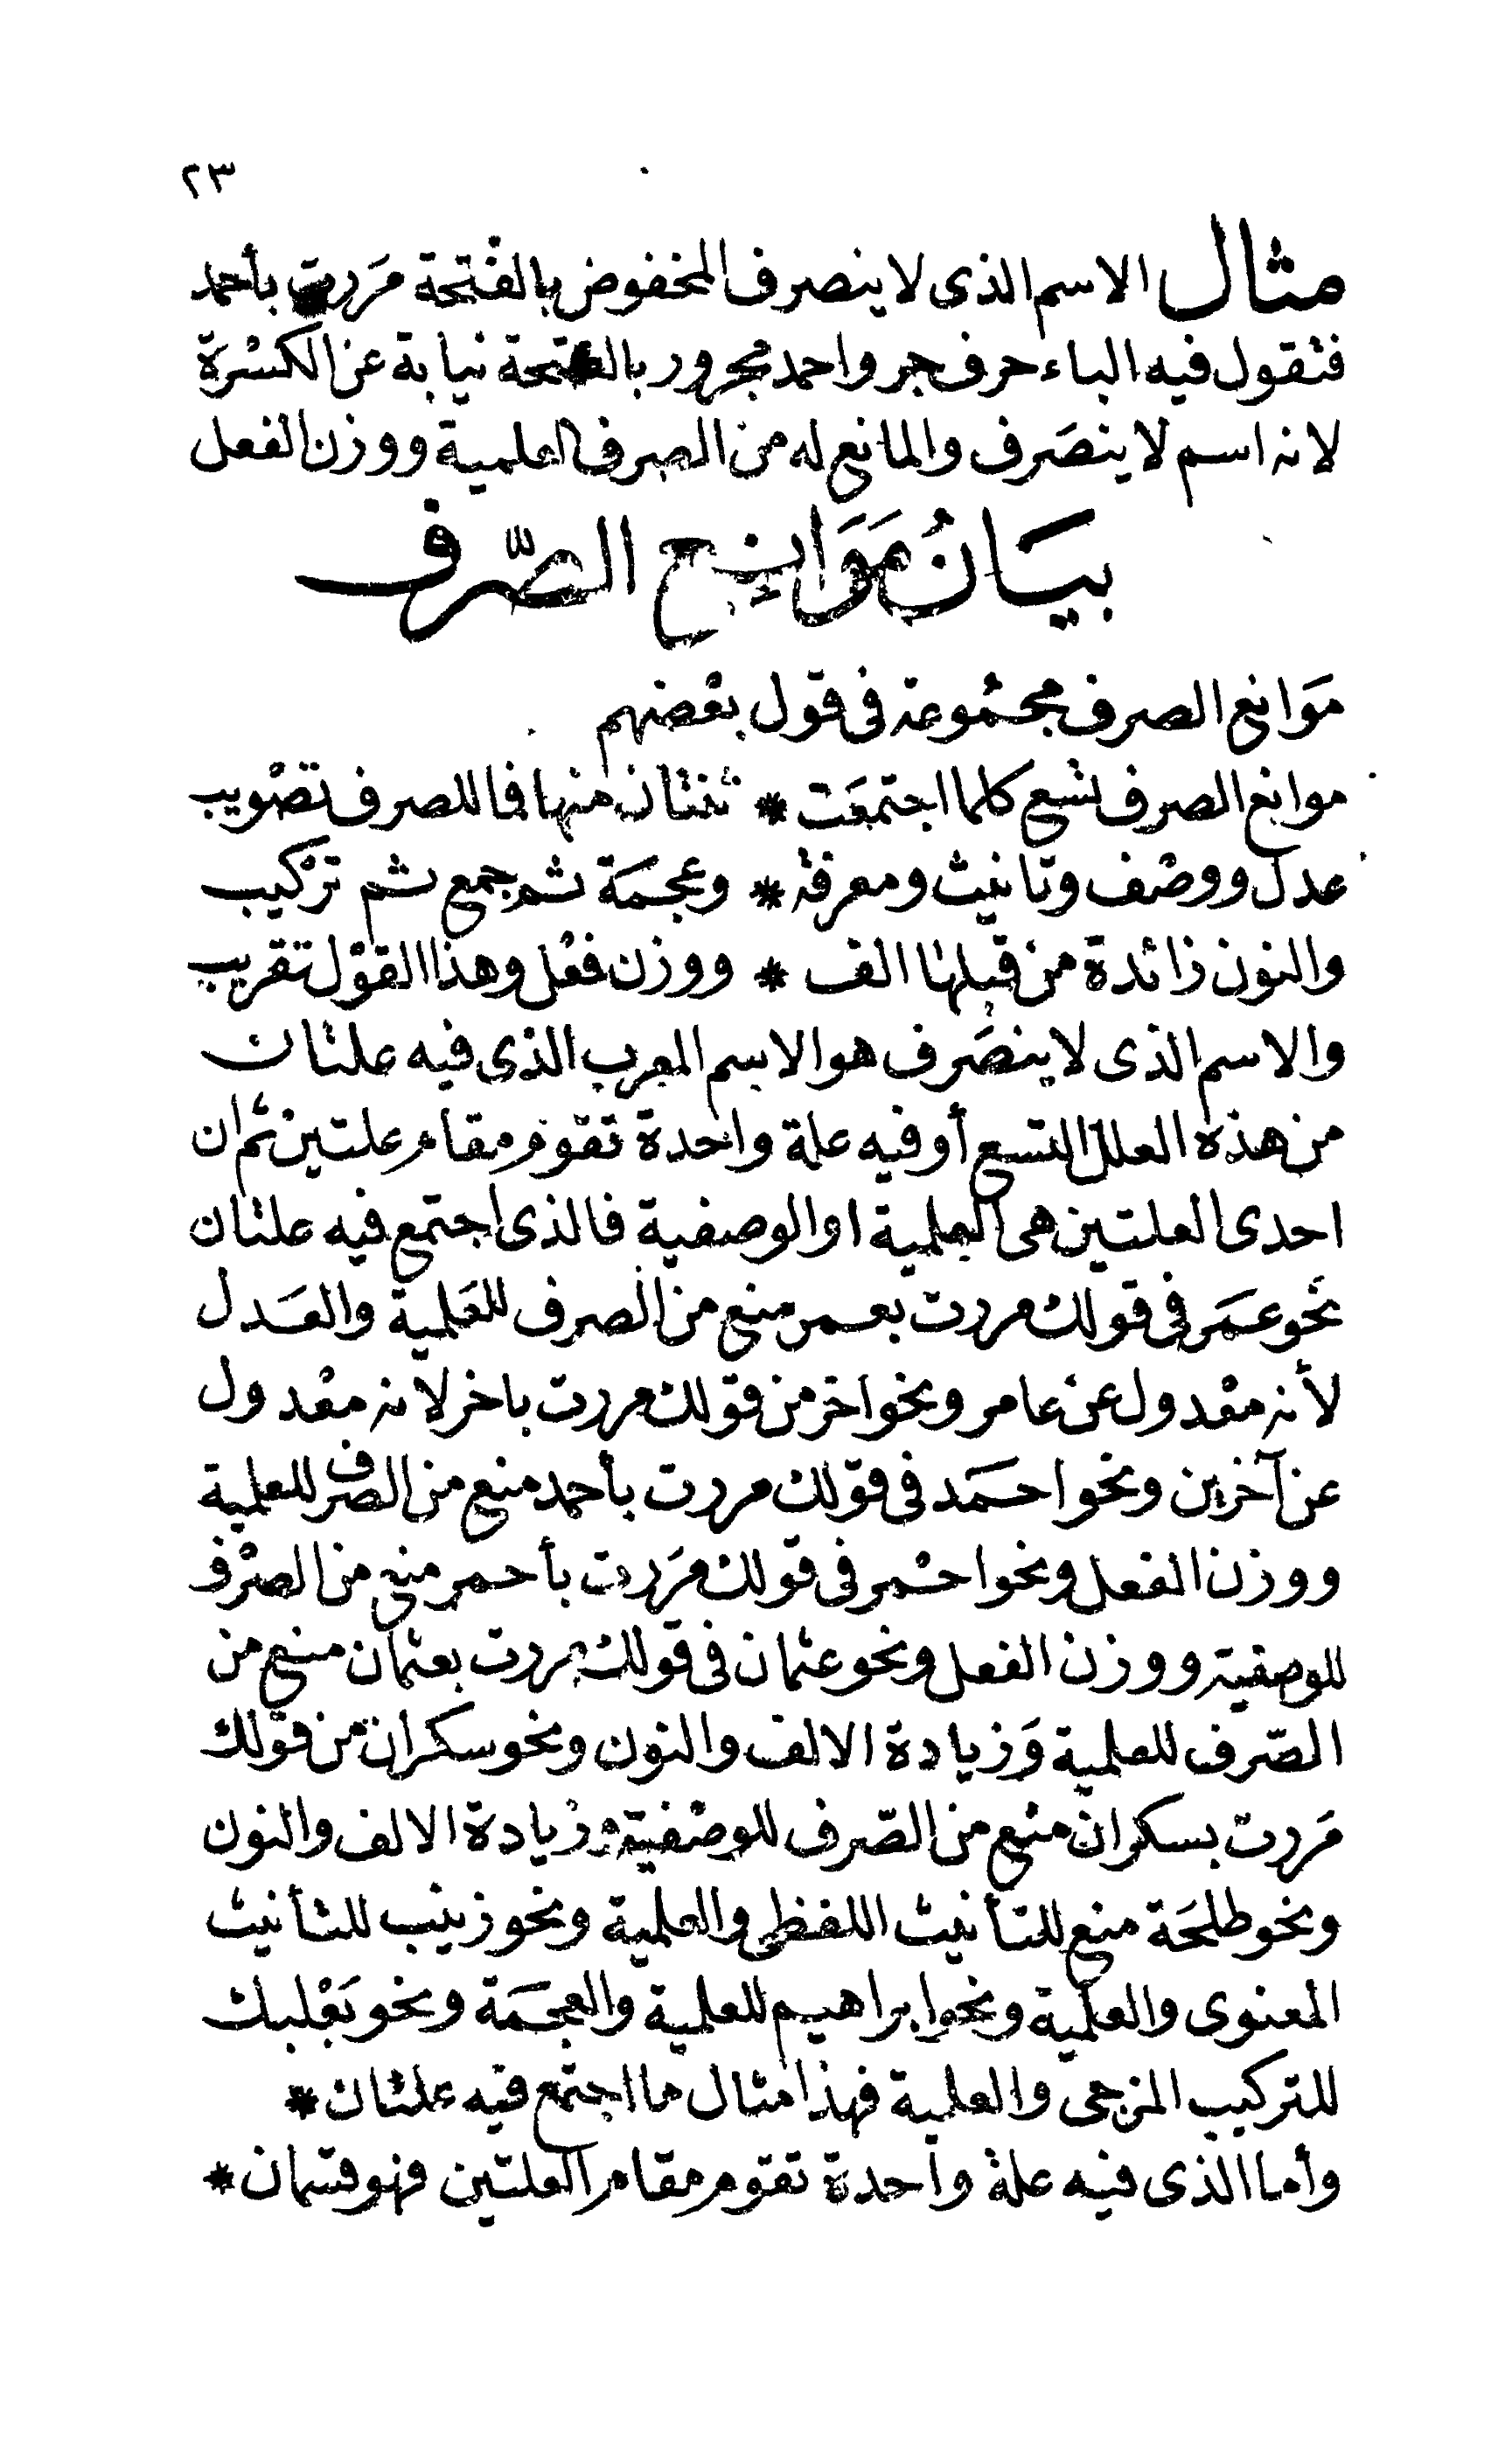 ٢٣
مثال الاسم الذى لا ينصرف المخفوض بالفتحة مَررت بأحمد
فتقول فيه الباء حرف جر واحمد مجرور بالفتحة نيابة عن الكسْرَة
لانه اسم لا ينصَرف والمانع له من الصرف العلمية ووزن الفعل
بيَانُ مَوَانِع الصّرف
مَوَانع الصرف مجمُوعة فى قول بعْضهم
موانع الصرف تسْع كلما اجتمعَت * ثنتان منها فما للصرف تصْويب
عدل ووصْف وتانيث ومعرفة * وعجمَة ثم جمع ثم ترْكيب
والنون زائدة من قبلها الف * ووزن فعْل وهذا القوْل تقريب
والاسم الذى لا ينصَرف هو الاسم المعرب الذى فيه علتان
من هذه العلل التسع أو فيه علة واحدة تقوم مقام علتين ثم ان
احدى العلتين هى العلمية او الوصفية فالذى اجتمع فيه علتان
نحو عمَر فى قولك مررت بعمر منع من الصرف للعَلمية والعَدل
لأنه معْدول عن عامر ونحو اخر من قولك مررت باخر لانه معْدول
عن آخرين ونحو احمَد فى قوْلك مررت بأحمد منع من الصرف للعلمية
ووزن الفعل ونحو احْمر فى قولك مَررت بأحمر منع من الصرْف
للوصفية ووزن الفعل ونحو عثمان فى قولك مررت بعثمان منع من
الصّرف للعلمية وَزيادة الالف والنون ونحو سكران من قوْلك
مَررت بسكران منع من الصّرف للوصْفية وزيادة الالف والنون
ونحو طلحَة منع للتأنيث اللفظى والعلمية ونحو زينب للتأنيث
المعنوى والعلمية ونحو ابراهيم للعلمية والعجمَة ونحو بَعْلبك
للتركيب المزجى والعلمية فهذا مثال ما اجتمع فيه علتان *
وأما الذى فيه علة واحدة تقوم مقام العلتين فهو قسمان *